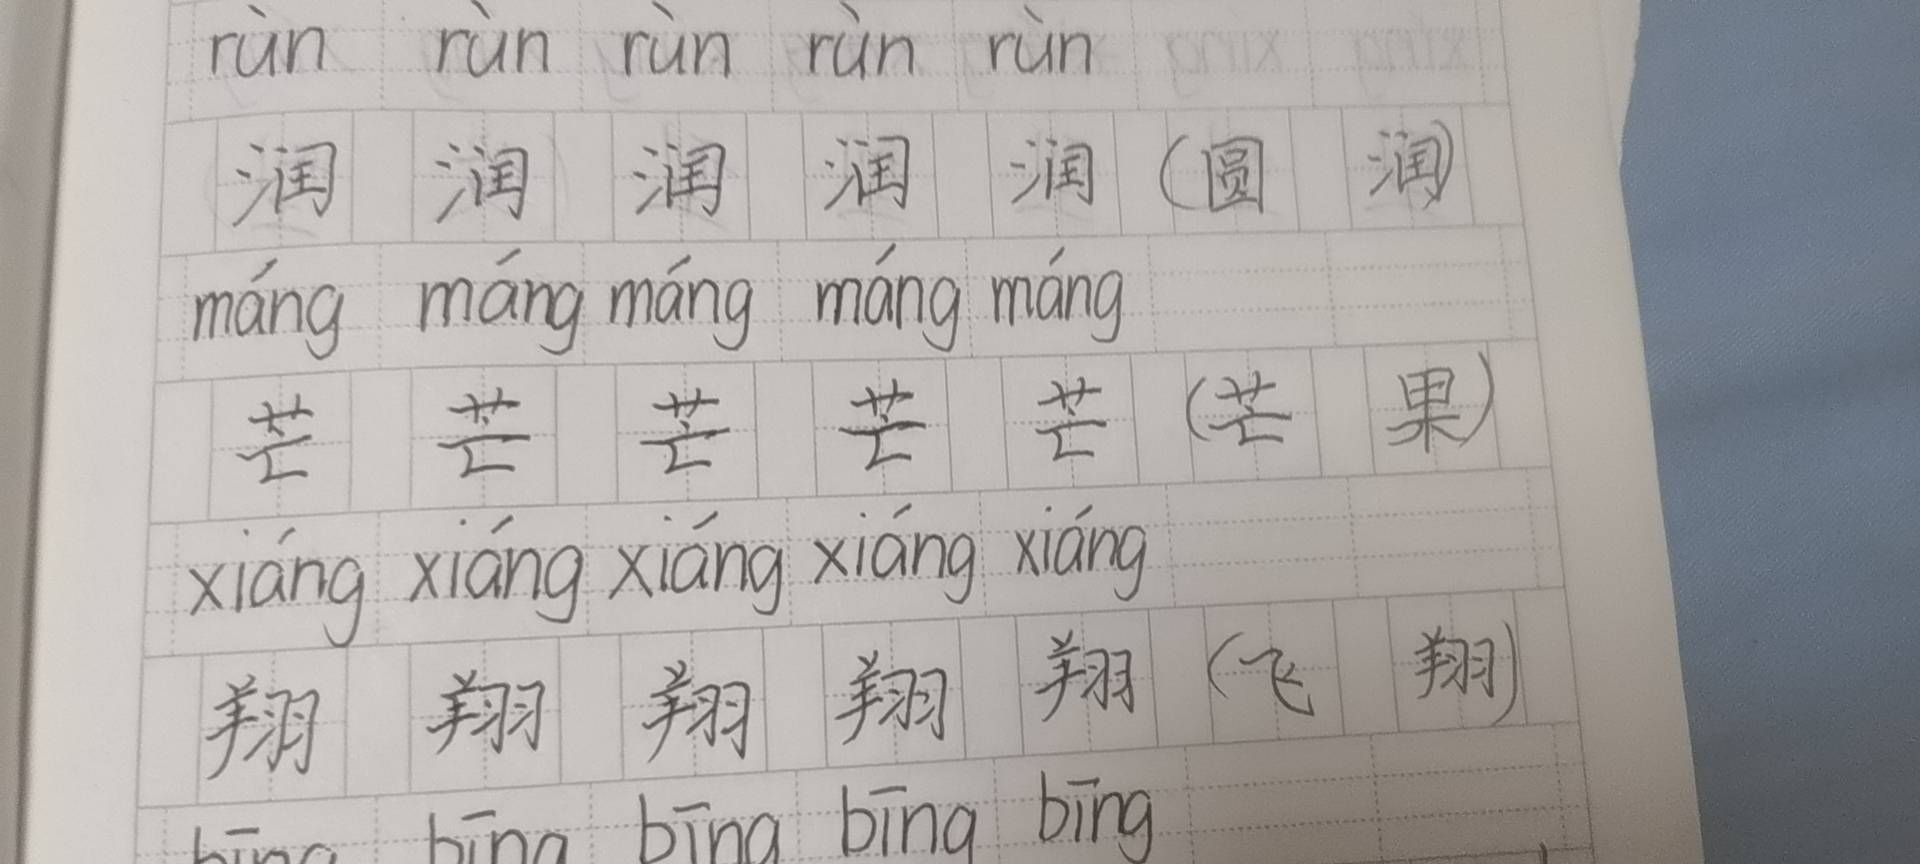 rùn rùn rùn rùn rùn
润 润 润 润 润 (圆 润)
máng máng máng máng máng
芒 芒 芒 芒 芒 (芒 果)
xiáng xiáng xiáng xiáng xiáng
翔 翔 翔 翔 翔 (飞 翔)
bīng bīng bīng bīng bīng